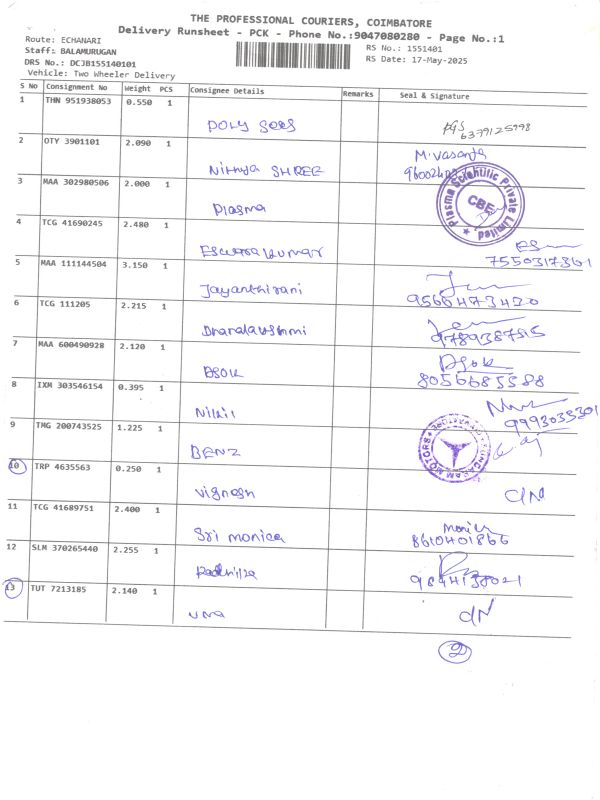 THE PROFESSIONAL COURIERS, COIMBATORE
Delivery Runsheet - PCK - Phone No.:9047080280 - Page No.:1
Route: ECHANARI
RS No.: 1551401
Staff: BALAMURUGAN
RS Date: 17-May-2025
DRS No.: DCJB155140101
Vehicle: Two Wheeler Delivery
S No Consignment No Weight PCS Consignee Details Remarks Seal & Signature
1 THN 951938053 0.550 1
POLY 6379125998
2 OTY 3901101 2.090 1 M.Vasanta
Nithya SHREE
3 MAA 302980506 2.000 1
Plasma Plasma Scientific Private Limited CBE
4 TCG 41690245 2.480 1
Eswarakumar 7550317361
5 MAA 111144504 3.150 1
Jayanthirani 9566473420
6 TCG 111205 2.215 1
Dhanalakshmi 9789387515
7 MAA 600490928 2.120 1 DSOK
DSOK 8056685588
8 IXM 303546154 0.395 1
Nikil 9993033301
9 TMG 200743525 1.225 1
BENZ MOTORS
10 TRP 4635563 0.250 1
Vignesh dN
11 TCG 41689751 2.400 1 Monica
Sri monica 8610401866
12 SLM 370265440 2.255 1
9844138021
13 TUT 7213185 2.140 1
uma dN
2